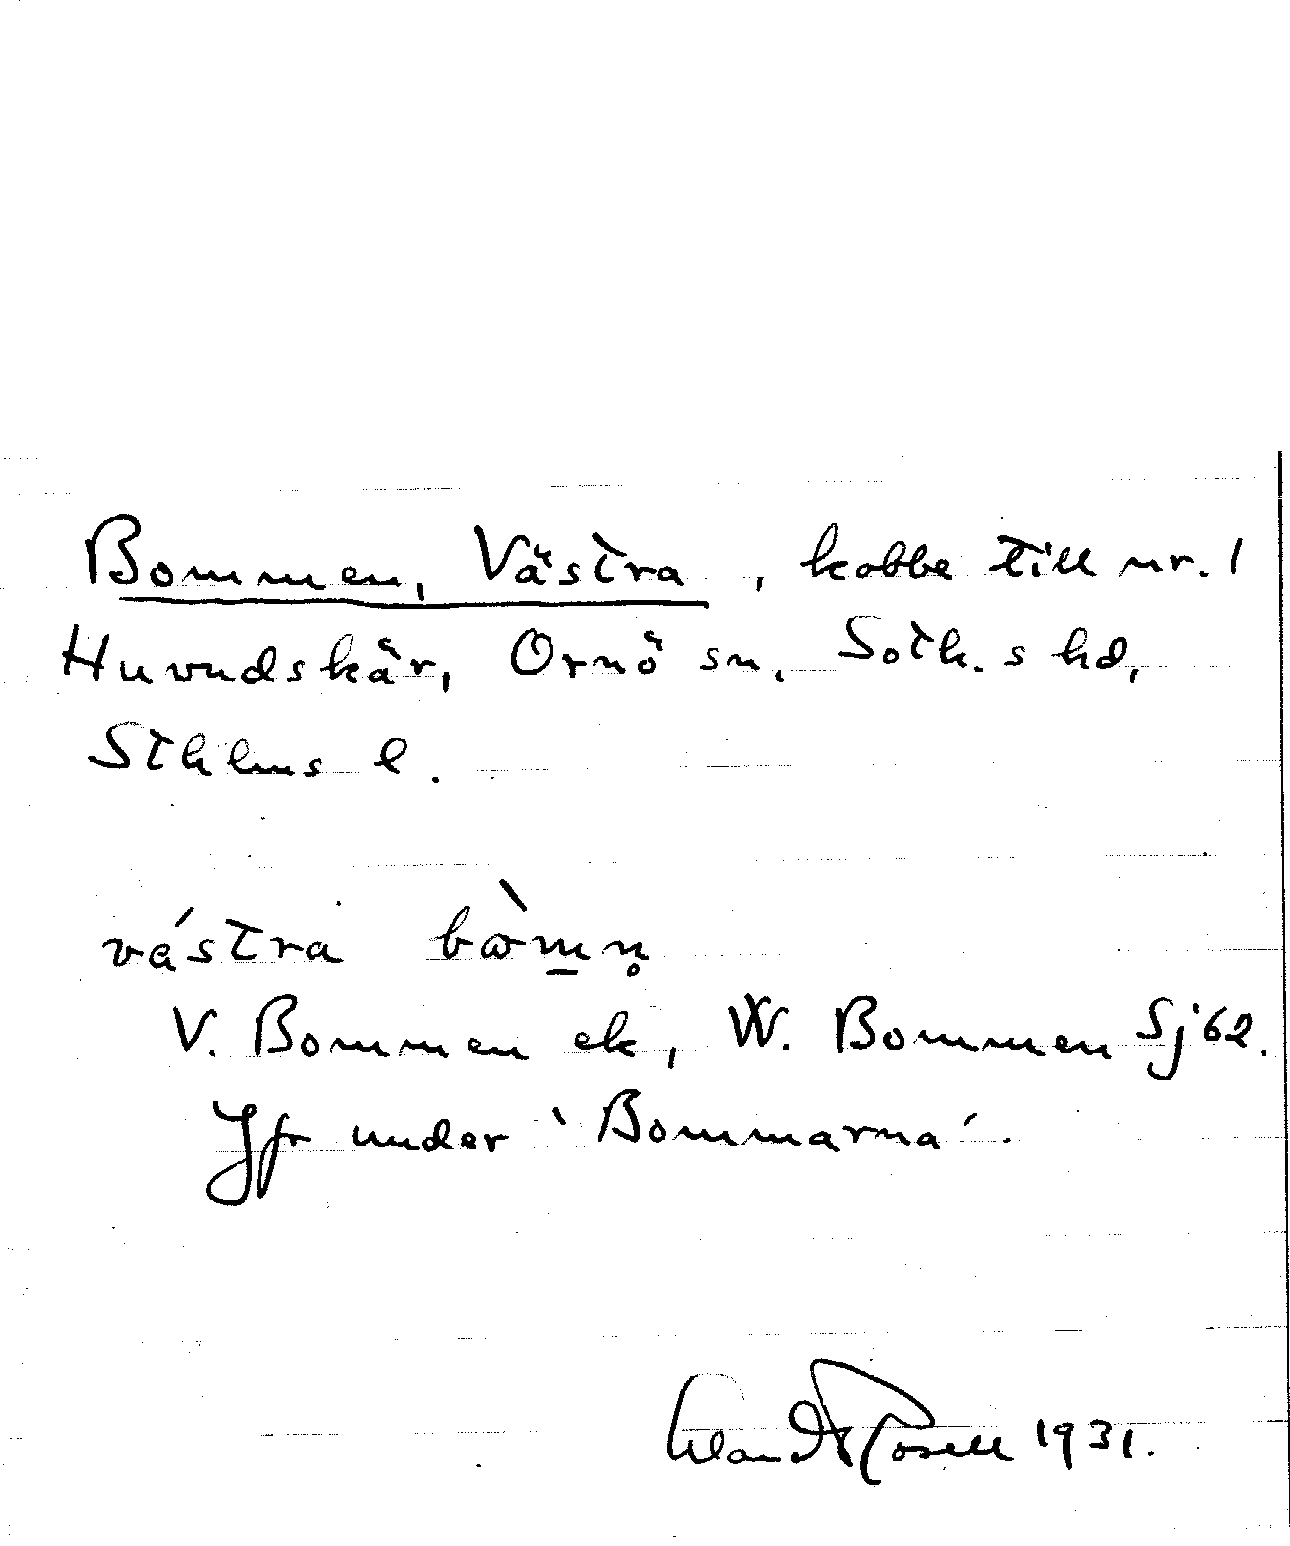 Bommen, Västra, kobbe till nr. 1
Huvudskär, Ornö sn. Soth. s hd,
Sthlms l.
västra bòm̲n̥
V. Bommen ek, W. Bommen Sj '62.
Jfr under 'Bommarna'.
Erland Rosell 1931.